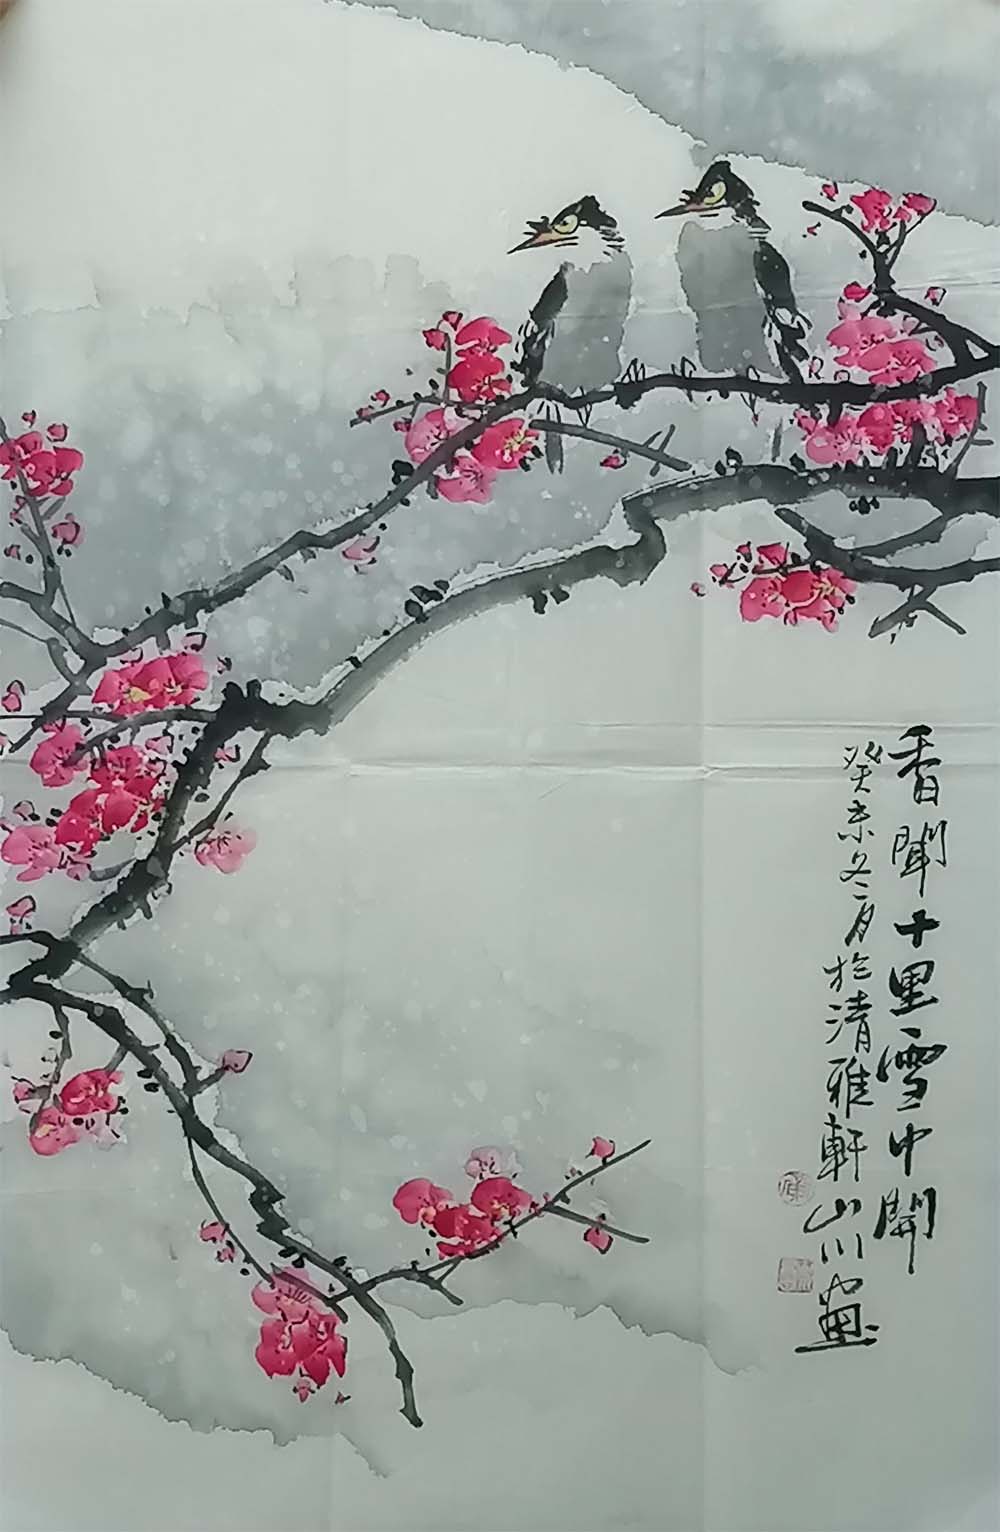 香聞十里雪中開
癸未冬二月於清雅軒山川畫